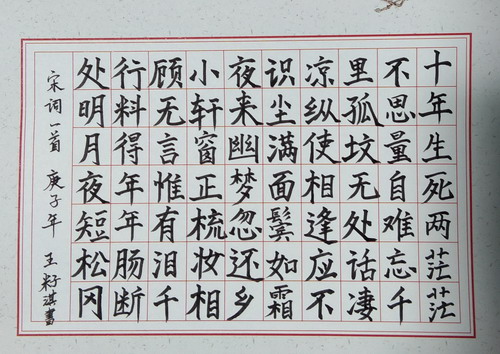 十年生死两茫茫
不思量自难忘千
里孤坟无处话凄
凉纵使相逢应不
识尘满面鬓如霜
夜来幽梦忽还乡
小轩窗正梳妆相
顾无言惟有泪千
行料得年年肠断
处明月夜短松冈
宋词一首 庚子年 王籽淇書